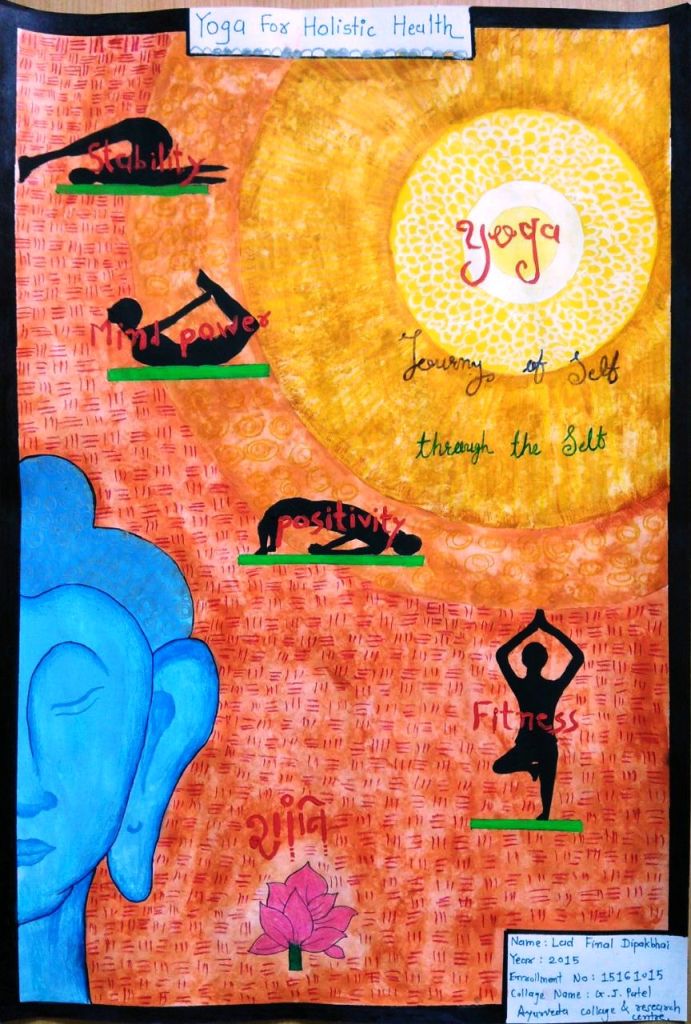 Yoga For Holistic Health
Stability
yoga
Mind power
Journy of Self
through the Self
positivity
Fitness
શાંતિ
Name: Lad Final Dipakbhai
Year: 2015
Enrollment No: 15161015
Collage Name: G.J. Patel
Ayurveda collage & research
centre.